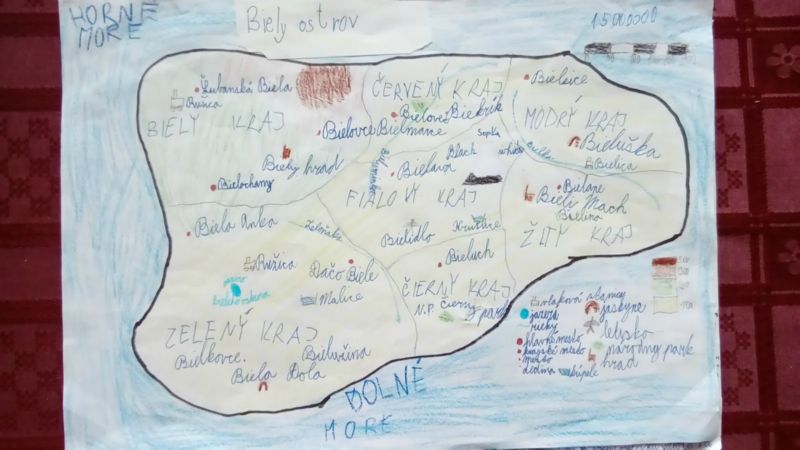 HORNÉ
MORE
Biely ostrov
1:5000000
Ľubanská Biela
Ružica
BIELY KRAJ
ČERVENÝ KRAJ
Bielovce
Bielmane
Biekrik
Bielevce
MODRÝ KRAJ
Bieluška
Bielica
Biely hrad
Bielochamy
Sopka
Black
white
Bielava
FIALOVÝ KRAJ
Bielane
Bieli Mach
Bielina
ŽLTÝ KRAJ
Biela Anka
Zelenka
Bielidlo
Ružica
Dačo Biele
Malice
Bieluch
ČIERNY KRAJ
N.P. Čierny park
ZELENÝ KRAJ
Bielkovce
Bieluvina
Biela Dola
DOLNÉ
MORE
vlaková stanica
jazerá
rieky
hlavné mesto
krajské mesto
mesto
dedina
kúpele
jaskyňa
letisko
národný park
hrad